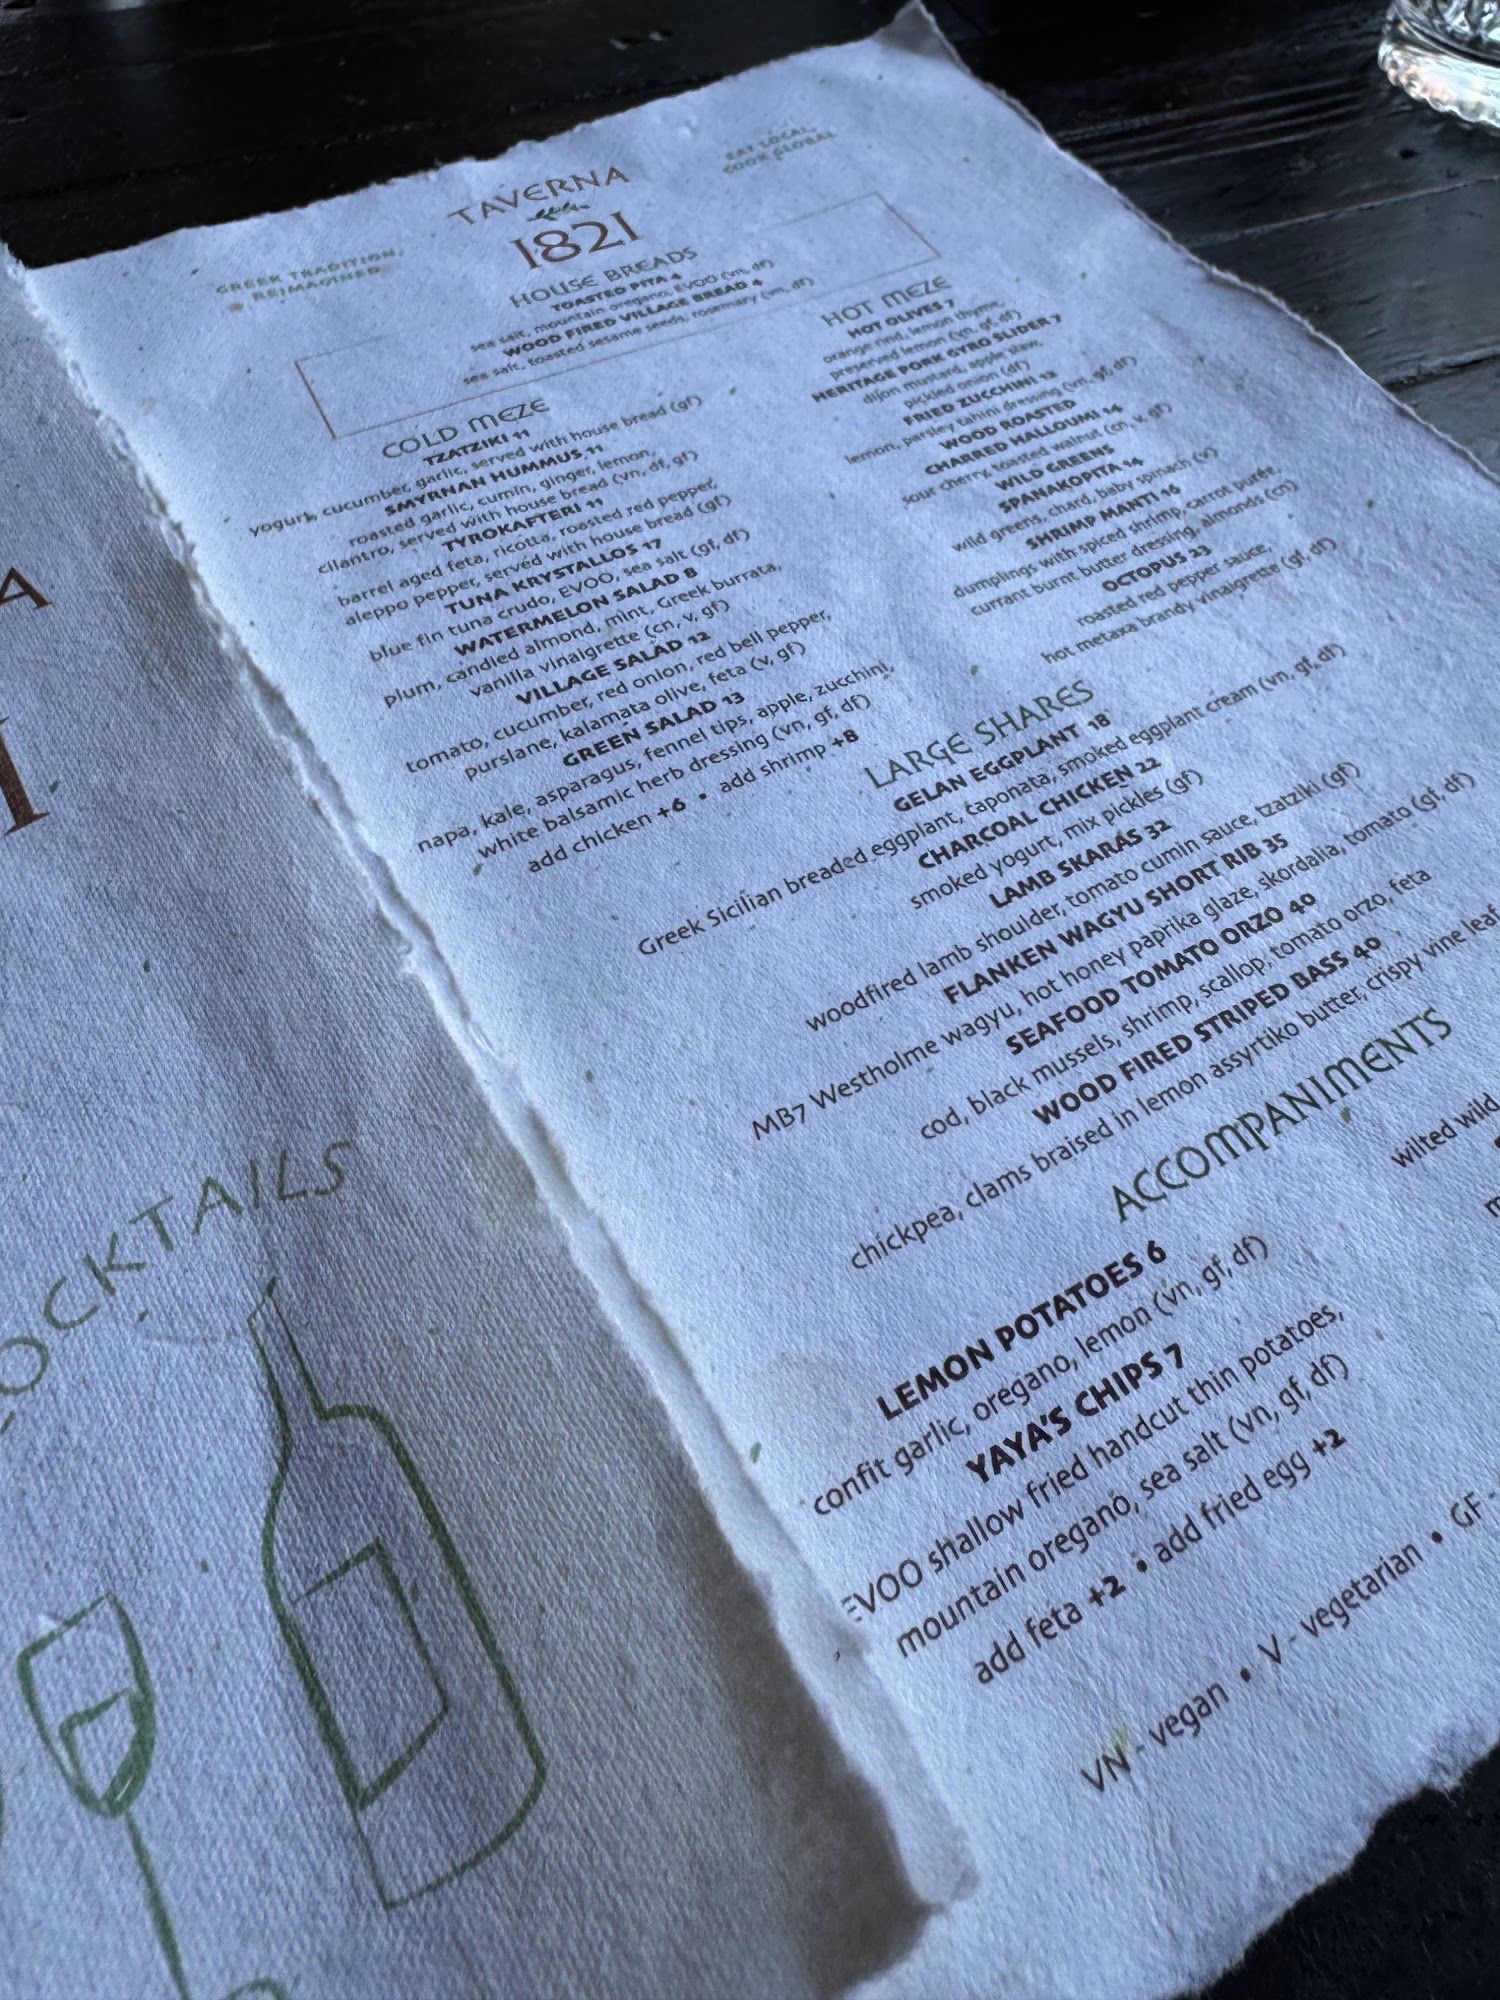 TAVERNA
1821
GREEK TRADITION,
REIMAGINED
EAT LOCAL,
COOK GLOBAL
HOUSE BREADS
TOASTED PITA 4
sea salt, mountain oregano, EVOO (vn, df)
WOOD FIRED VILLAGE BREAD 4
sea salt, toasted sesame seeds, rosemary (vn, df)
COLD MEZE
TZATZIKI 11
yogurt, cucumber, garlic, served with house bread (gf)
SMYRNAN HUMMUS 11
roasted garlic, cumin, ginger, lemon,
cilantro, served with house bread (vn, df, gf)
TYROKAFTERI 11
barrel aged feta, ricotta, roasted red pepper,
aleppo pepper, served with house bread (gf)
TUNA KRYSTALLOS 17
blue fin tuna crudo, EVOO, sea salt (gf, df)
WATERMELON SALAD 8
plum, candied almond, mint, Greek burrata,
vanilla vinaigrette (cn, v, gf)
VILLAGE SALAD 12
tomato, cucumber, red onion, red bell pepper,
purslane, kalamata olive, feta (v, gf)
GREEN SALAD 13
napa, kale, asparagus, fennel tips, apple, zucchini,
white balsamic herb dressing (vn, gf, df)
add chicken +6 • add shrimp +8
HOT MEZE
HOT OLIVES 7
orange rind, lemon thyme,
preserved lemon (vn, gf, df)
HERITAGE PORK GYRO SLIDER 7
dijon mustard, apple slaw,
pickled onion (df)
FRIED ZUCCHINI 12
lemon, parsley tahini dressing (vn, gf, df)
WOOD ROASTED
CHARRED HALLOUMI 14
sour cherry, toasted walnut (cn, v, gf)
WILD GREENS
SPANAKOPITA 14
wild greens, chard, baby spinach (v)
SHRIMP MANTI 16
dumplings with spiced shrimp, carrot purée,
currant burnt butter dressing, almonds (cn)
OCTOPUS 23
roasted red pepper sauce,
hot metaxa brandy vinaigrette (gf, df)
LARGE SHARES
GELAN EGGPLANT 18
Greek Sicilian breaded eggplant, caponata, smoked eggplant cream (vn, gf, df)
CHARCOAL CHICKEN 22
smoked yogurt, mix pickles (gf)
LAMB SKARAS 32
woodfired lamb shoulder, tomato cumin sauce, tzatziki (gf)
FLANKEN WAGYU SHORT RIB 35
MB7 Westholme wagyu, hot honey paprika glaze, skordalia, tomato (gf, df)
SEAFOOD TOMATO ORZO 40
cod, black mussels, shrimp, scallop, tomato orzo, feta
WOOD FIRED STRIPED BASS 40
chickpea, clams braised in lemon assyrtiko butter, crispy vine leaf
ACCOMPANIMENTS
LEMON POTATOES 6
confit garlic, oregano, lemon (vn, gf, df)
YAYA'S CHIPS 7
EVOO shallow fried handcut thin potatoes,
mountain oregano, sea salt (vn, gf, df)
add feta +2 • add fried egg +2
wilted wild
VN - vegan • V - vegetarian • GF -
A
1
OCKTAILS